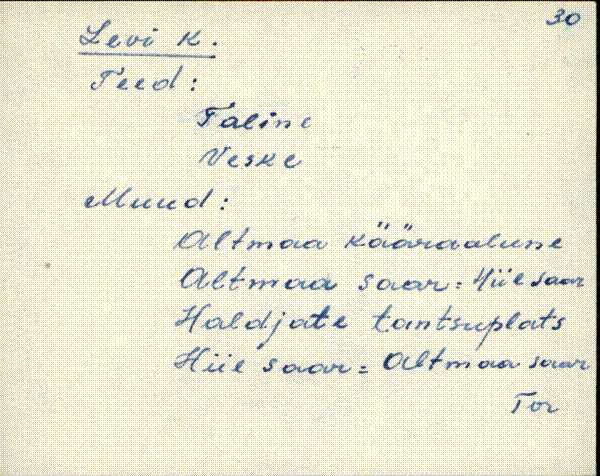 30
Levi k.
Teed:
Taline
Veske
Muud:
Altmaa kääraalune
Altmaa saar = Hiie saar
Haldjate tantsuplats
Hiie saar = Altmaa saar
Tor